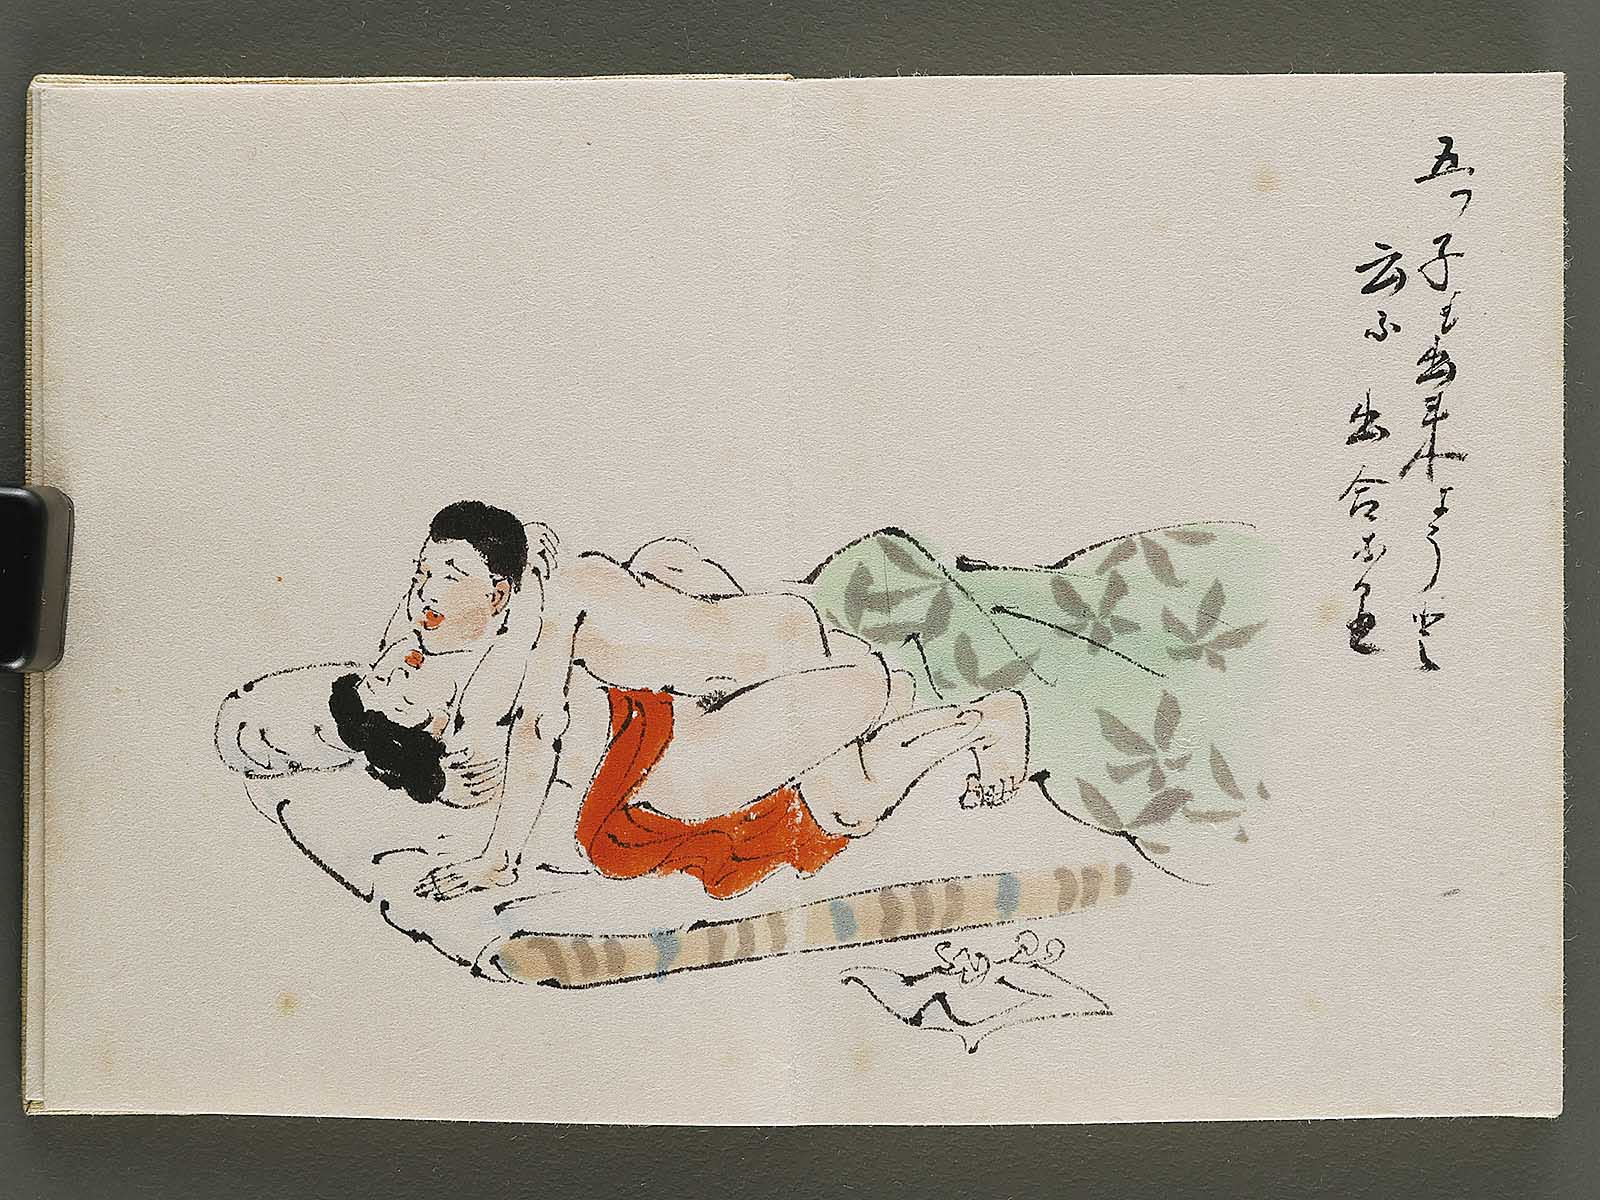 五つ子も出来ようと
云ふ出合な里